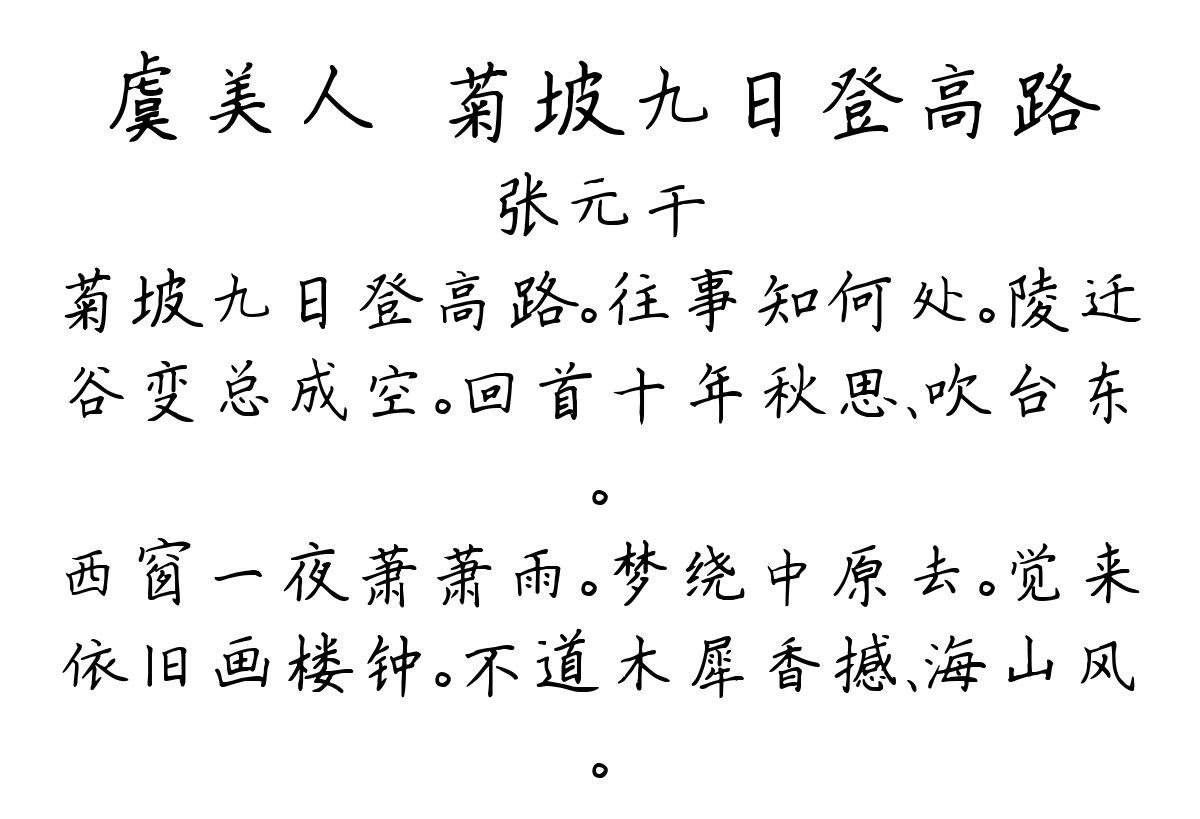 虞美人 菊坡九日登高路
张元干
菊坡九日登高路。往事知何处。陵迁
谷变总成空。回首十年秋思、吹台东
。
西窗一夜萧萧雨。梦绕中原去。觉来
依旧画楼钟。不道木犀香撼、海山风
。